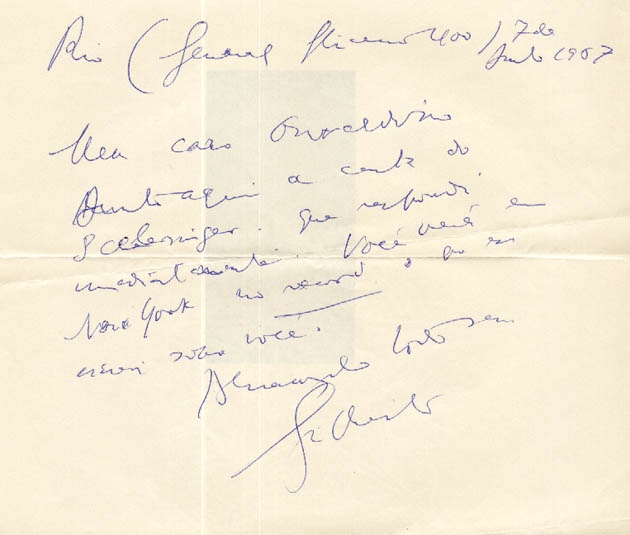 Rio (General Glicerio 400) 7 de
Junho 1957
Meu caro Oswaldino
Junto aqui a carta do
Schlesinger. que respondi
imediatamente. Você verá em
New York no record o que eu
escrevi sobre você.
todo seu